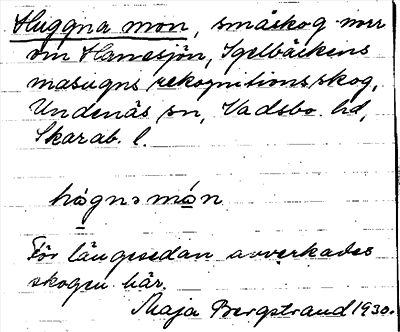 Huggna mon, småskog norr
om Hamesjön, Igelbäckens
masugns rekognitionsskog,
Undenäs sn, Vadsbo hd,
Skarab. l.
hògnə món
För längesedan avverkades
skogen här.
Maja Bergstrand 1930.